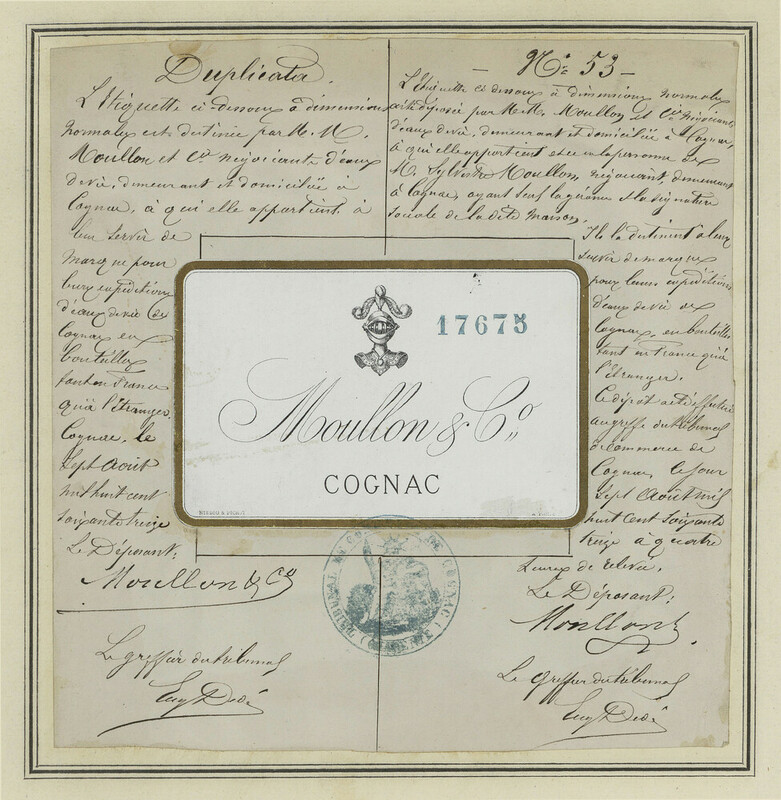 Duplicata.
L'Etiquette ci-dessous à dimensions
normales est destinée par M.M.
Moullon et Cº négociants d'eaux
de vie, demeurant et domiciliés à
Cognac, à qui elle appartient à
leur servir de
marque pour
leurs expéditions
d'eaux de vie de
Cognac en
bouteilles
tant en France
qu'à l'étranger.
Cognac, le
Sept Août
mil huit cent
soixante treize
Le Déposant:
Moullon & Cº
Le greffier du tribunal
Eug Didé
- Nº 53 -
L'Etiquette ci-dessous à dimensions normales
est déposée par M.M. Moullon et Cº négociants
d'eaux de vie, demeurant et domiciliés à Cognac,
à qui elle appartient et en la personne de
M. Sylvestre Moullon, négociant, demeurant
à Cognac, ayant seul la gérance et la signature
sociale de la dite maison.
Ils la destinent à leur
servir de marque
pour leurs expéditions
d'eaux de vie de
Cognac, en bouteilles
tant en France qu'à
l'étranger.
Le dépôt a été effectué
au greffe du tribunal
de commerce de
Cognac, ce jour
Sept Août mil
huit cent soixante
treize à quatre
heures de relevée.
Le Déposant:
Moullon
Le greffier du tribunal
Eug Didé
17675
Moullon & Cº
COGNAC
TRIBUNAL DE COMMERCE DE COGNAC